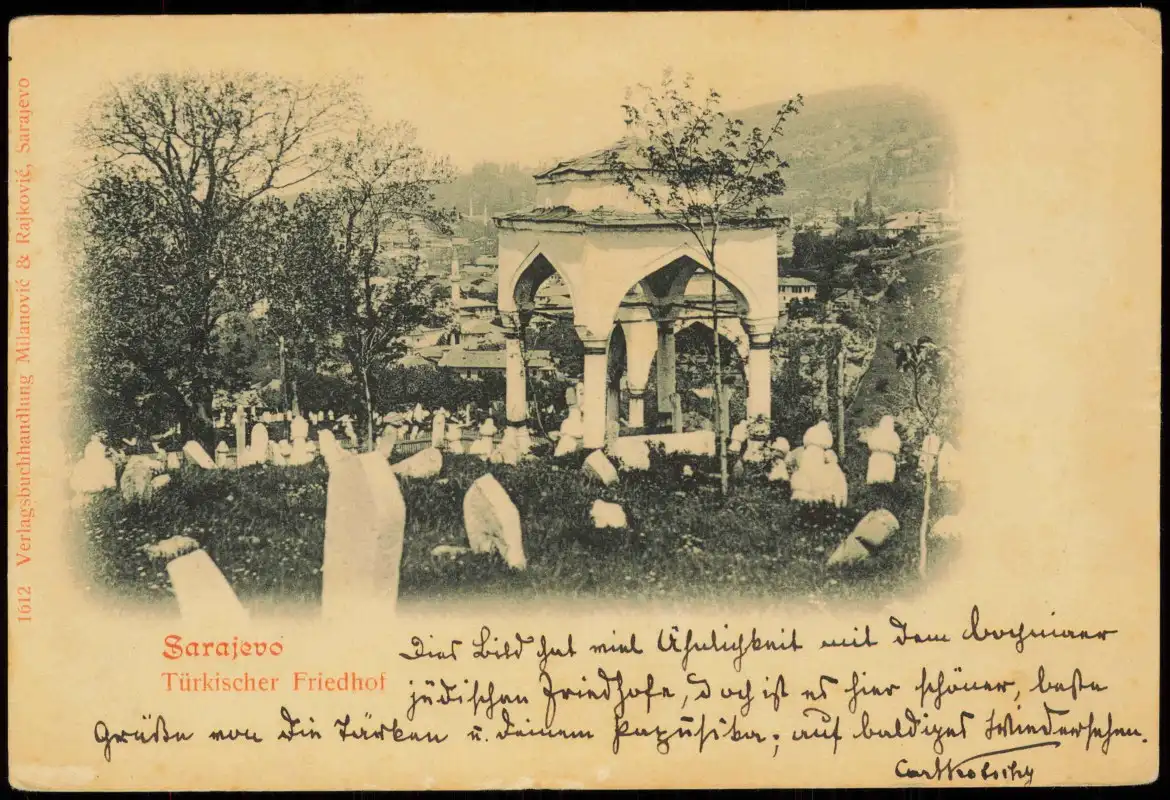 1612 Verlagsbuchhandlung Milanović & Rajković, Sarajevo
Sarajevo
Türkischer Friedhof
Dies Bild hat viel Ähnlichkeit mit dem
jüdischen Friedhofe, doch ist es hier schöner, beste
Grüße von die Türken u. deinem auf baldiges Wiedersehen.